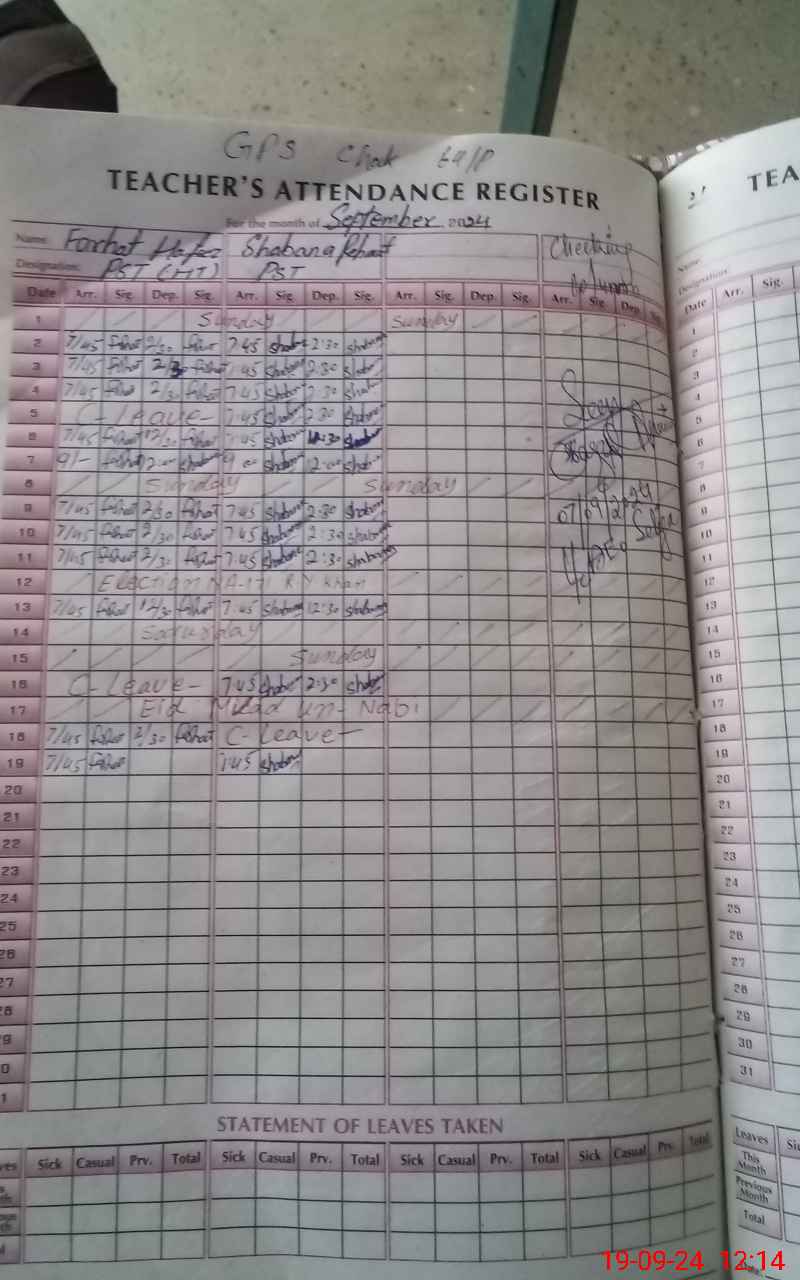 GPS Chak 64/P
TEACHER'S ATTENDANCE REGISTER
For the month of September 2024
Name: Farhat Hafeez Shabana Checking
Designation: PST (HT) PST
Date Arr. Sig. Dep. Sig. Arr. Sig. Dep. Sig. Arr. Sig. Dep. Sig. Arr. Sig. Dep.
1 Sunday Sunday
2 7/45 farhat 2/30 farhat 7:45 shabana 2:30 shabana
3 7/45 farhat 2/30 farhat 7:45 shabana 2:30 shabana
4 7/45 farhat 2/30 farhat 7:45 shabana 2:30 shabana
5 C-Leave- 7:45 shabana 2:30 shabana
6 7/45 farhat 12/30 farhat 7:45 shabana 12:30 shabana
7 9/- farhat 12:00 shabana 9:00 shabana 12:00 shabana
8 Sunday Sunday
9 7/45 farhat 2/30 farhat 7:45 shabana 2:30 shabana
07/09/2024
10 7/45 farhat 2/30 farhat 7:45 shabana 2:30 shabana
11 7/45 farhat 2/30 farhat 7:45 shabana 2:30 shabana
12 ELECTION NA-171 R.Y Khan
13 7/45 farhat 12/30 farhat 7:45 shabana 12:30 shabana
14 Saturday
15 Sunday
16 C-Leave- 7:45 shabana 2:30 shabana
17 Eid Milad un-Nabi
18 7/45 farhat 2/30 farhat C-Leave-
19 7/45 farhat 7:45 shabana
20
21
22
23
24
25
26
27
28
29
30
31
STATEMENT OF LEAVES TAKEN
Sick Casual Prv. Total Sick Casual Prv. Total Sick Casual Prv. Total Sick Casual Prv. Total
TEA
Name:
Designation:
Date Arr. Sig.
1
2
3
4
5
6
7
8
9
10
11
12
13
14
15
16
17
18
19
20
21
22
23
24
25
26
27
28
29
30
31
Leaves
This Month
Previous Month
Total
19-09-24 12:14